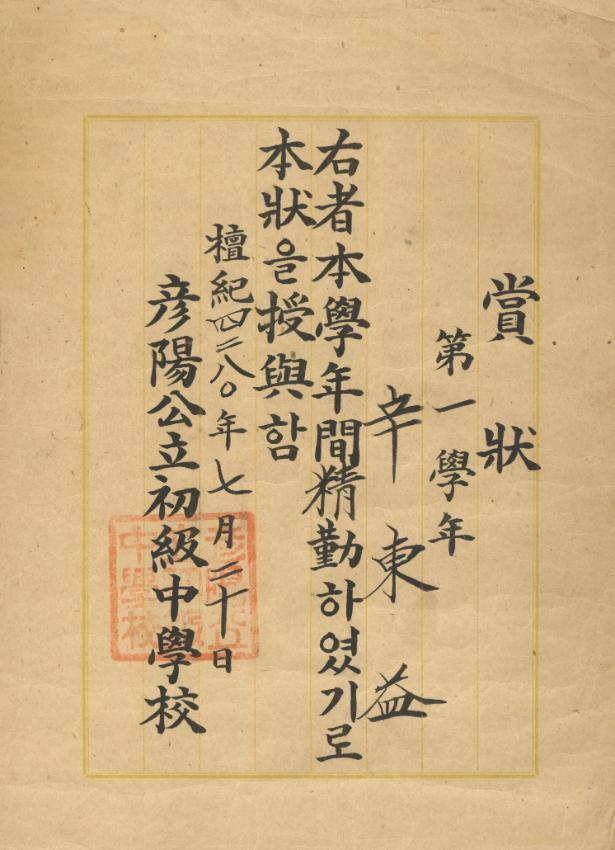 賞狀
第一學年
辛東益
右者本學年間精勤하였기로
本狀을授與함
檀紀四二八〇年七月二十日
彦陽公立初級中學校
彦陽公立
中學校